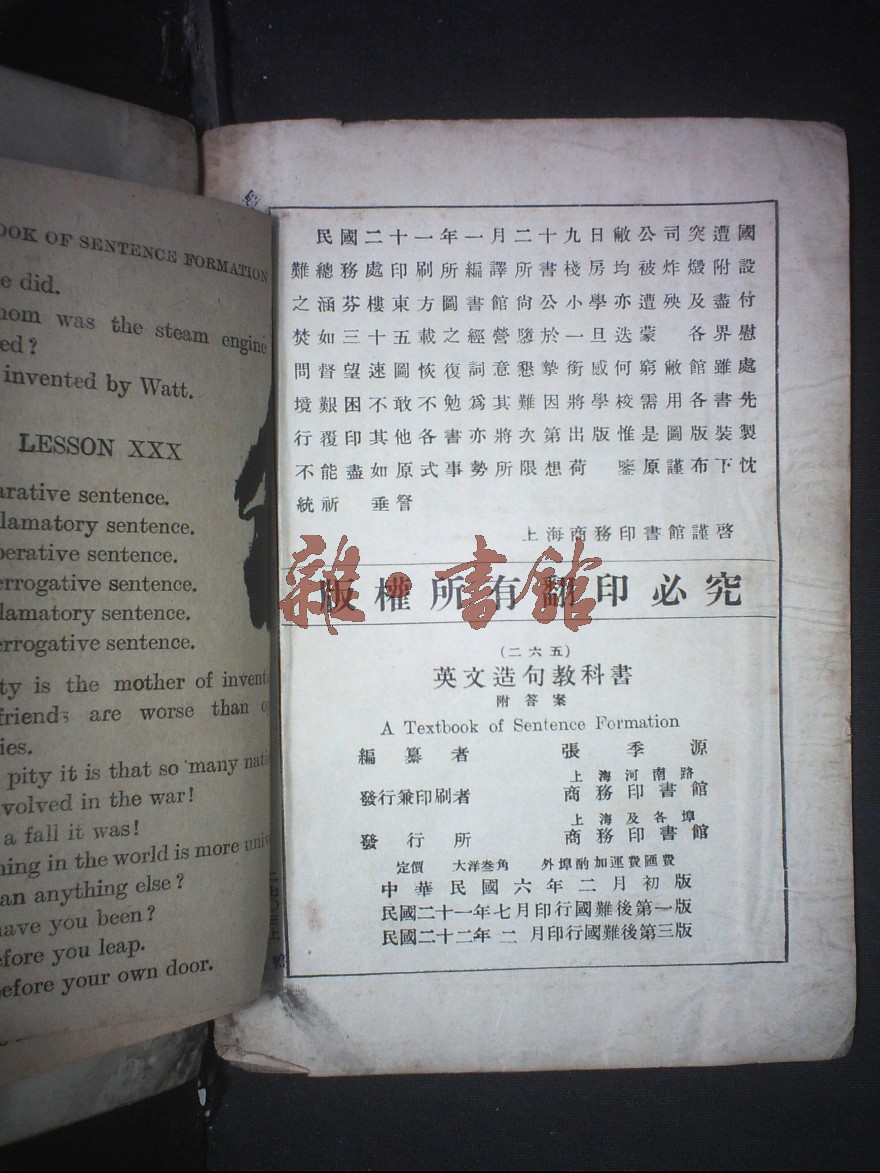 OOK OF SENTENCE FORMATION
e did.
hom was the steam engine
ed?
invented by Watt.
LESSON XXX
arative sentence.
lamatory sentence.
perative sentence.
errogative sentence.
lamatory sentence.
errogative sentence.
ty is the mother of inventi
friends are worse than o
ies.
pity it is that so many nati
volved in the war!
a fall it was!
hing in the world is more unive
an anything else?
have you been?
efore you leap.
efore your own door.
民國二十一年一月二十九日敝公司突遭國
難總務處印刷所編譯所書棧房均被炸燬附設
之涵芬樓東方圖書館尚公小學亦遭殃及盡付
焚如三十五載之經營隳於一旦迭蒙 各界慰
問督望速圖恢復詞意懇摯銜感何窮敝館雖處
境艱困不敢不勉爲其難因將學校需用各書先
行覆印其他各書亦將次第出版惟是圖版裝製
不能盡如原式事勢所限想荷 鑒原謹布下忱
統祈 垂詧
上海商務印書館謹啓
版權所有翻印必究
雜·書館
(二六五)
英文造句教科書
附答案
A Textbook of Sentence Formation
編纂者 張季源
發行兼印刷者 上海河南路 商務印書館
發行所 上海及各埠 商務印書館
定價 大洋叁角 外埠酌加運費匯費
中華民國六年二月初版
民國二十一年七月印行國難後第一版
民國二十二年二月印行國難後第三版